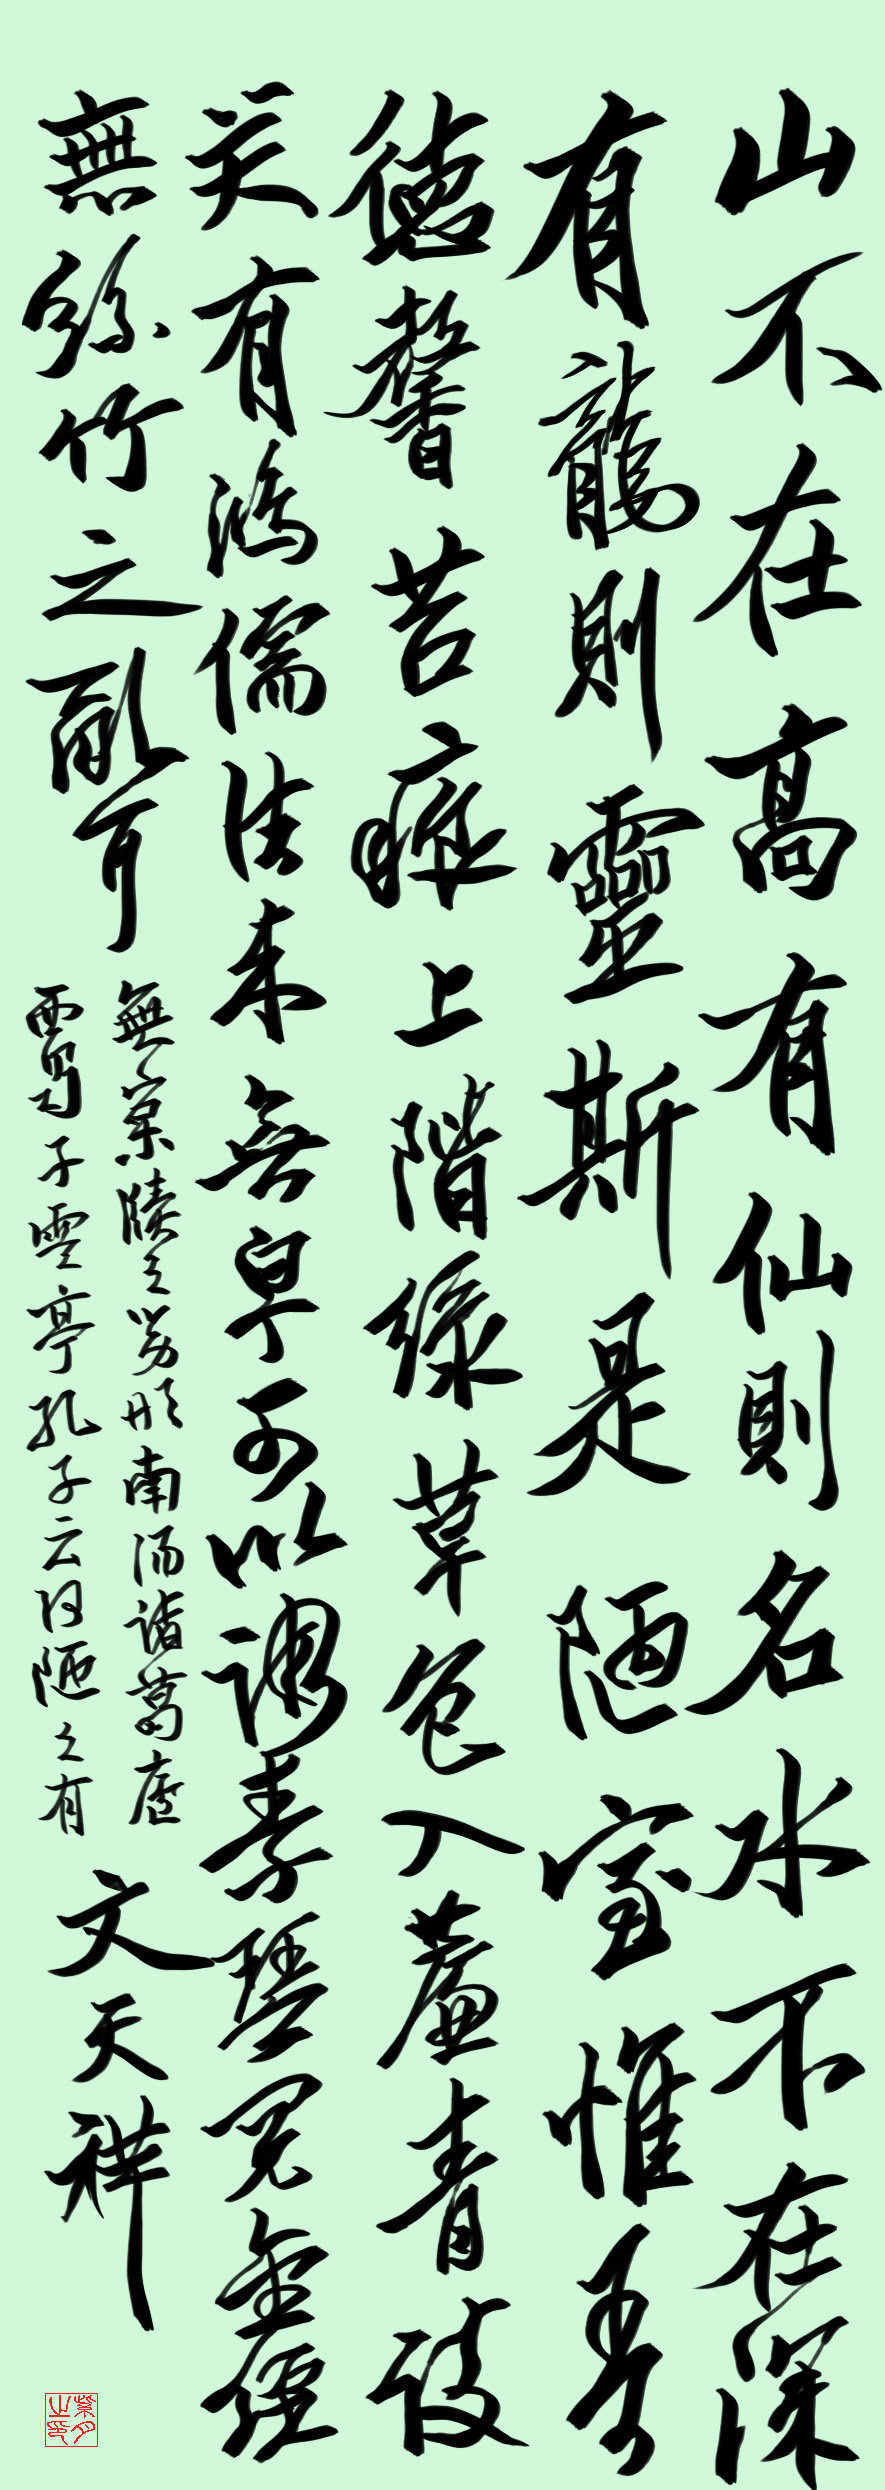 山不在高有仙則名水不在深
有龍則靈斯是陋室惟吾
德馨苔痕上階綠草色入簾青談
笑有鴻儒往来無白丁可以調素琴閱金經
無絲竹之亂耳
無案牘之勞形南陽諸葛廬
西蜀子雲亭孔子云何陋之有
文天祥